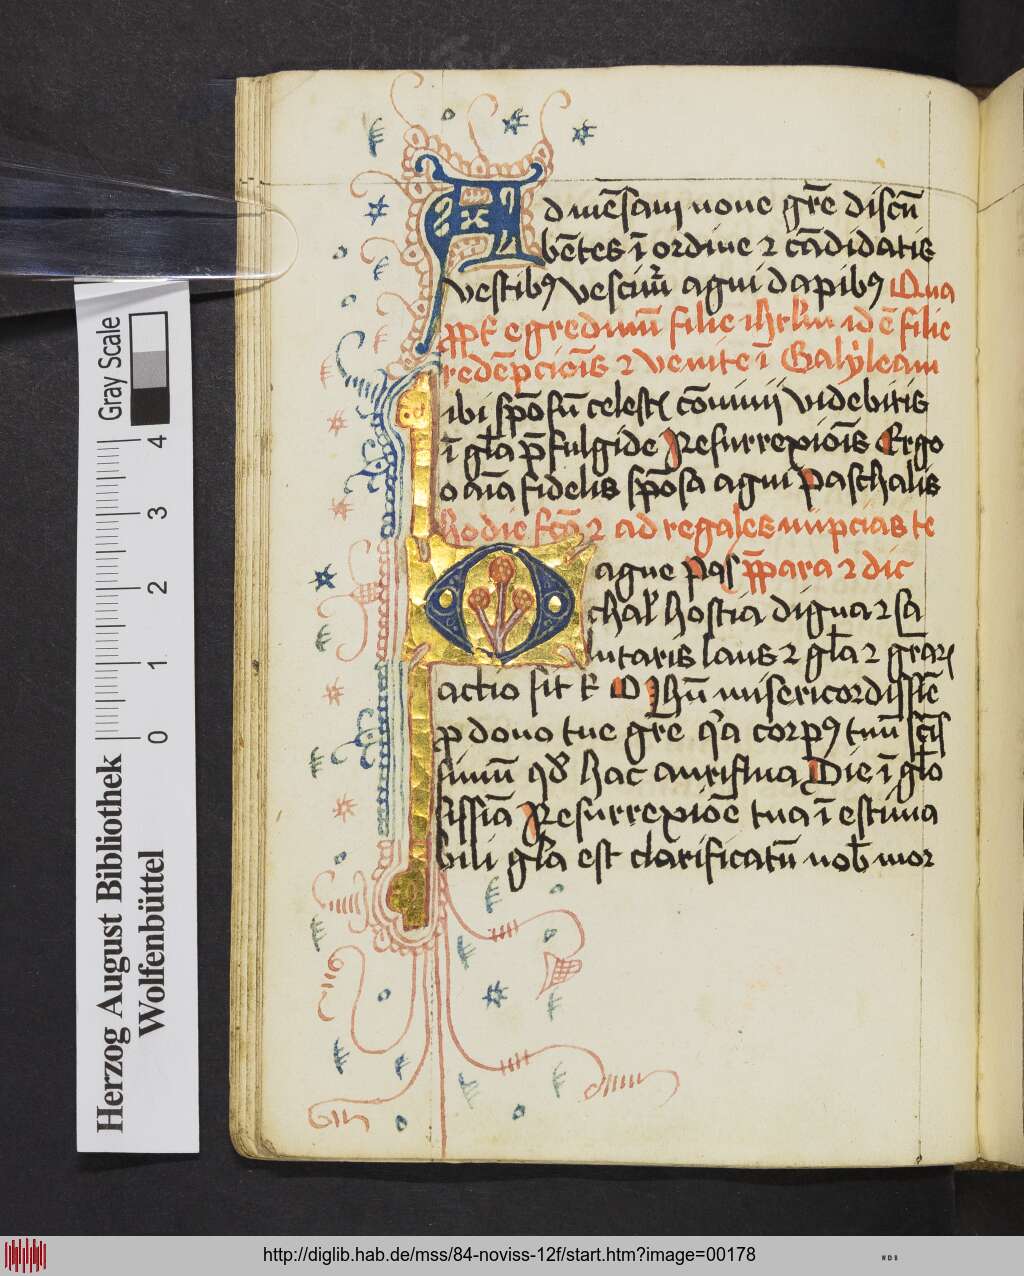 Ad mēsam noue grē discū
bētes ī ordine ⁊ cādidatis
vestibꝰ vescimr̄ agni dapibꝰ Qua
ꝓpt̄ egredimī filie ihrlm id ē filie
redēpcioīs ⁊ venite ī Galyleam
ibi spōsū celestē cōminꝰ videbitis
ī gła p̄fulgide Resurrexioīs Ergo
o aīa fidelis spōsa agni paschalis
hodie fcā ⁊ ad regales nupcias te
p̄para ⁊ dic
O agne pas
chal' hostia digna ⁊ sa
lutaris laus ⁊ gła ⁊ grar̄
actio sit t' O Jhū misericordissīe
ꝓ dono tue grē qa corpꝰ tuū scīs
simū qd hac auriflua Die ī glo
sissīa Resurrexiōe tua ī estima
bili gła est clarificatū nob̄ mor
Gray Scale
0 1 2 3 4
Herzog August Bibliothek
Wolfenbüttel
http://diglib.hab.de/mss/84-noviss-12f/start.htm?image=00178